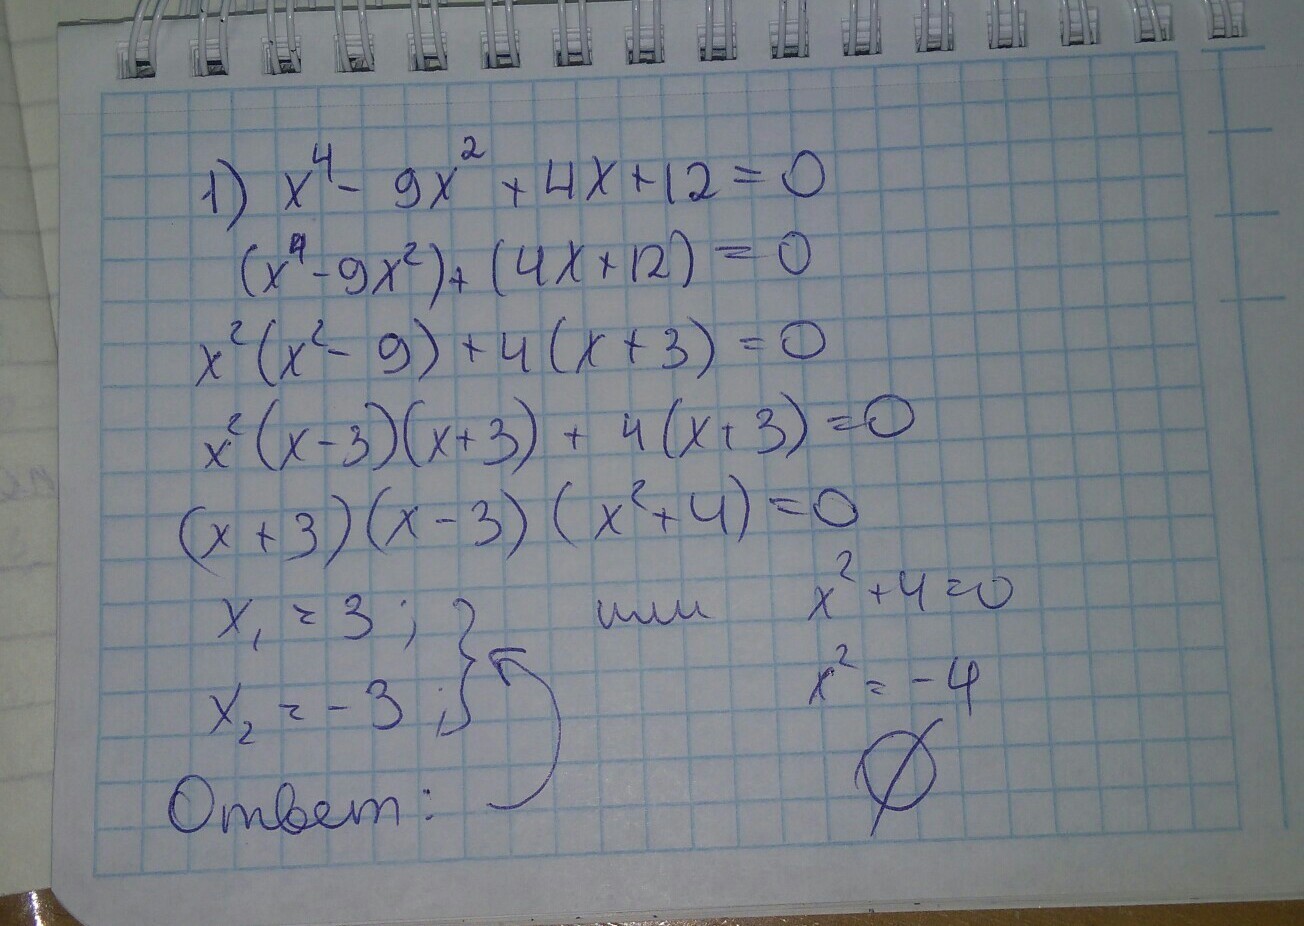 1) x⁴ - 9x² + 4x + 12 = 0
(x⁴ - 9x²) + (4x + 12) = 0
x²(x² - 9) + 4(x + 3) = 0
x²(x - 3)(x + 3) + 4(x + 3) = 0
(x + 3)(x - 3)(x² + 4) = 0
x₁ = 3; } или x² + 4 = 0
x₂ = -3; } x² = -4
Ответ: ∅